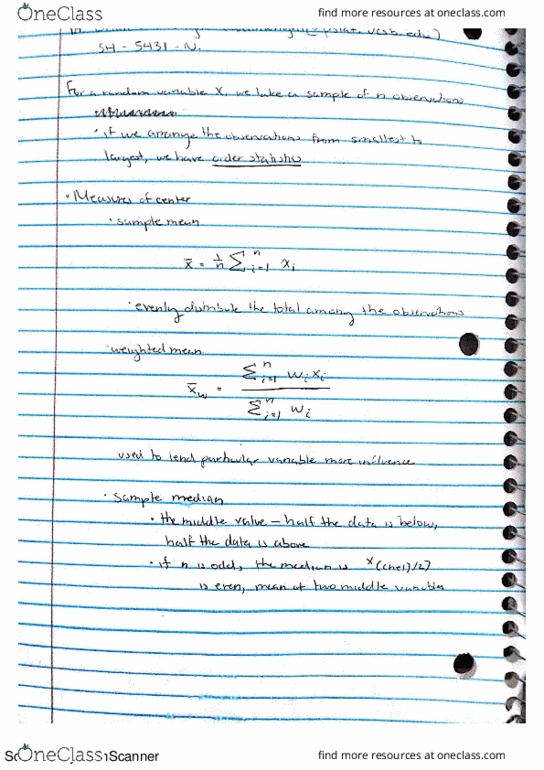 OneClass
find more resources at oneclass.com
SH - 5431 - N.
For a random variable X, we take a sample of n observations
· if we arrange the observations from smallest to
largest, we have order statistics
· Measures of center
· sample mean
x̄ = 1/n ∑ⁿᵢ₌₁ xᵢ
· evenly distribute the total among the observations
· weighted mean
x̄w = ∑ⁿᵢ₌₁ wᵢxᵢ / ∑ⁿᵢ₌₁ wᵢ
used to lend particular variable more influence
· sample median
· the middle value - half the data is below,
half the data is above
· if n is odd, the median is x((n+1)/2)
is even, mean of two middle variables
OneClass Scanner
find more resources at oneclass.com